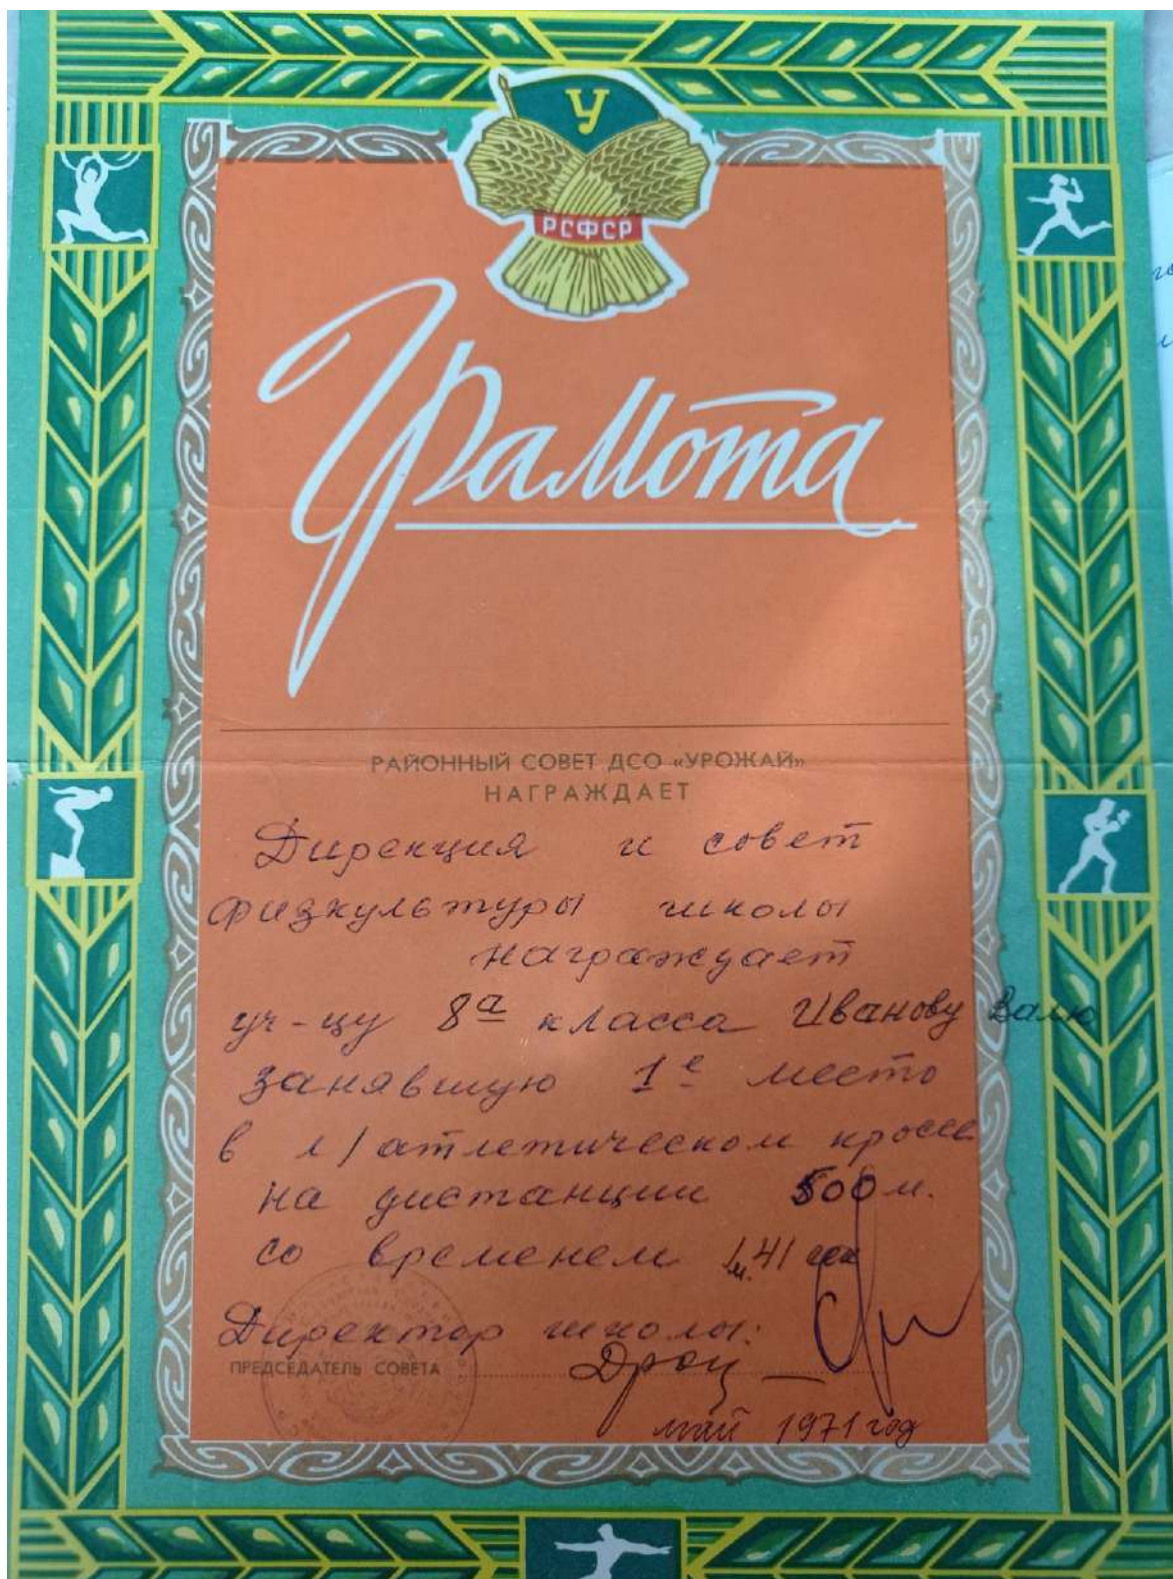 У
РСФСР
Грамота
РАЙОННЫЙ СОВЕТ ДСО «УРОЖАЙ»
НАГРАЖДАЕТ
Дирекция и совет
физкультуры школы
награждает
уч-цу 8а класса Иванову Валю
занявшую 1е место
в л/атлетическом кроссе
на дистанции 500 м.
со временем 1м. 41 сек
Директор школы:
ПРЕДСЕДАТЕЛЬ СОВЕТА
май 1971 год